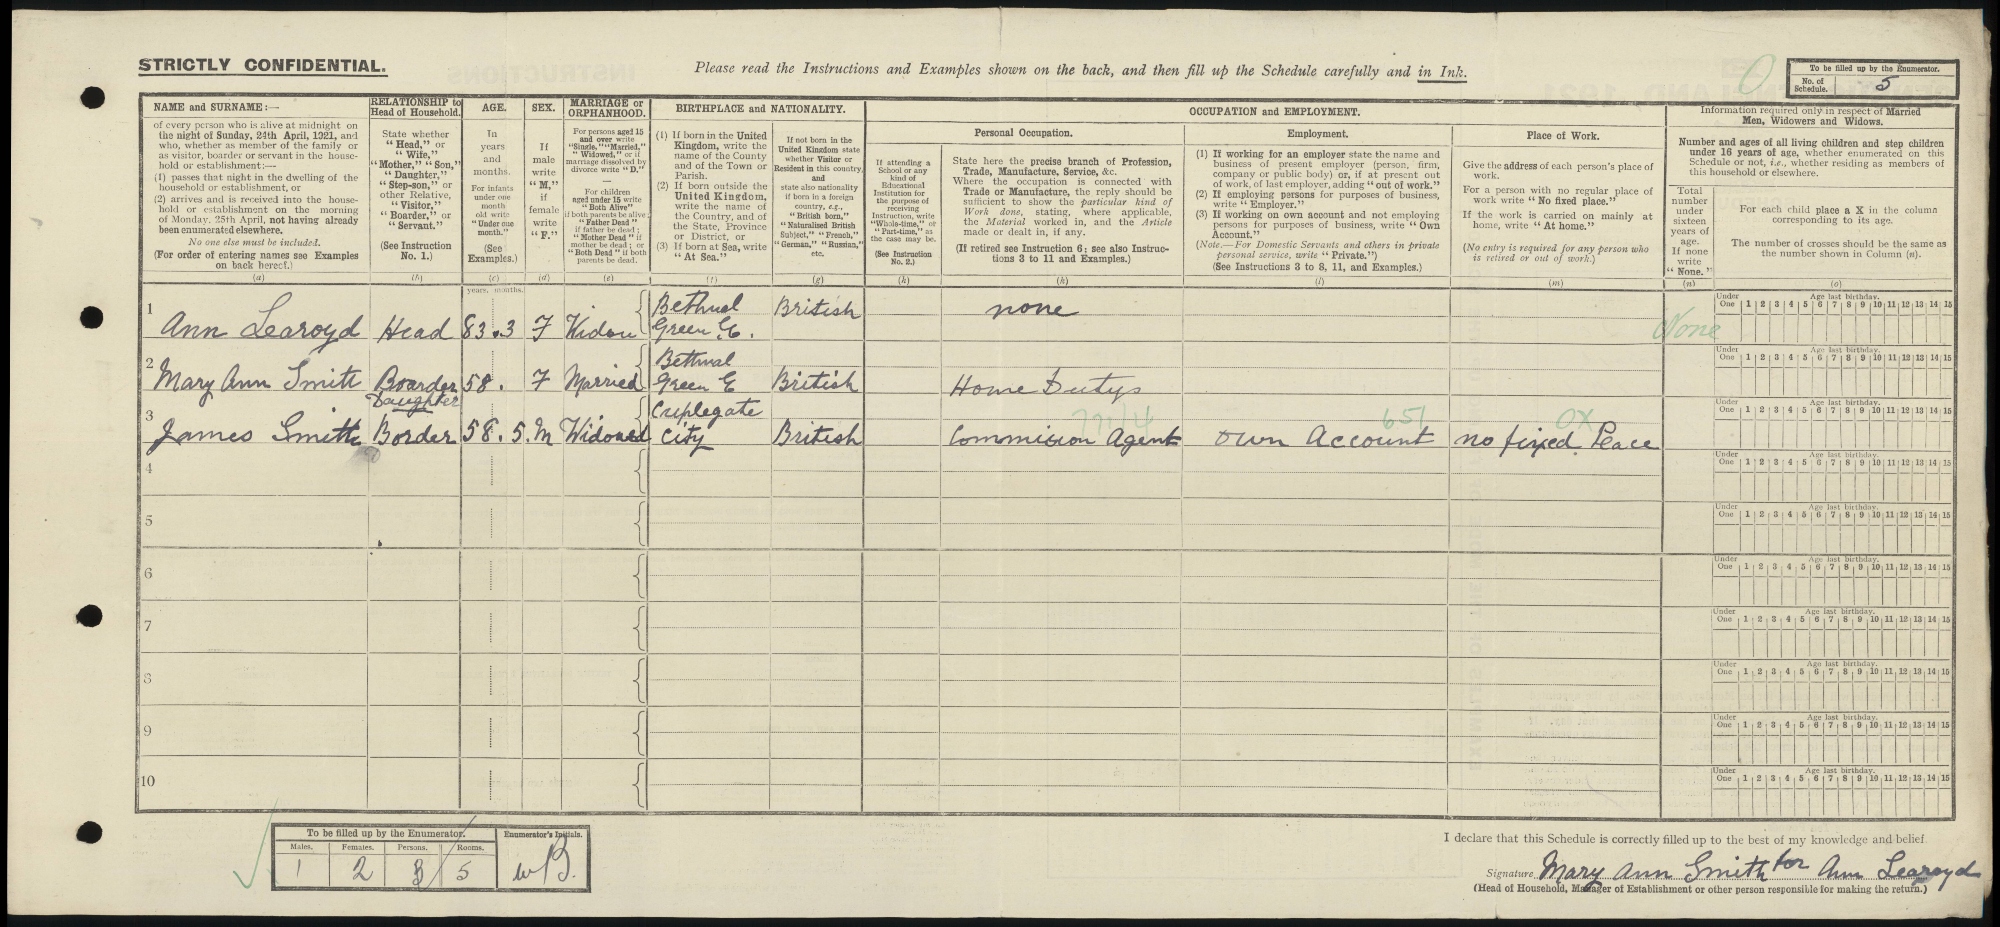 STRICTLY CONFIDENTIAL.
Please read the Instructions and Examples shown on the back, and then fill up the Schedule carefully and in Ink.
To be filled up by the Enumerator.
No. of Schedule. 5
NAME and SURNAME:—
of every person who is alive at midnight on
the night of Sunday, 24th April, 1921, and
who, whether as member of the family or
as visitor, boarder or servant in the house-
hold or establishment:—
(1) passes that night in the dwelling of the
household or establishment, or
(2) arrives and is received into the house-
hold or establishment on the morning
of Monday, 25th April, not having already
been enumerated elsewhere.
No one else must be included.
(For order of entering names see Examples
on back hereof.)
(a)
RELATIONSHIP to
Head of Household.
State whether
"Head," or
"Wife,"
"Mother," "Son,"
"Daughter,"
"Step-son," or
other Relative,
"Visitor,"
"Boarder," or
"Servant."
(See Instruction
No. 1.)
(b)
AGE.
In
years
and
months.
For infants
under one
month
old write
"Under one
month."
(See
Examples.)
(c)
SEX.
If
male
write
"M,"
if
female
write
"F."
(d)
MARRIAGE or
ORPHANHOOD.
For persons aged 15
and over write
"Single," "Married,"
"Widowed," or if
marriage dissolved by
divorce write "D."
For children
aged under 15 write
"Both Alive"
if both parents be alive;
"Father Dead"
if father be dead;
"Mother Dead" if
mother be dead; or
"Both Dead" if both
parents be dead.
(e)
BIRTHPLACE and NATIONALITY.
(1) If born in the United
Kingdom, write the
name of the County
and of the Town or
Parish.
(2) If born outside the
United Kingdom,
write the name of
the Country, and of
the State, Province
or District, or
(3) If born at Sea, write
"At Sea."
(f)
If not born in the
United Kingdom
state whether
Visitor or
Resident in this country,
and
state also nationality
if born in a foreign
country, e.g.,
"British born,"
"Naturalised British
Subject," "French,"
"German," "Russian,"
etc.
(g)
OCCUPATION and EMPLOYMENT.
If attending a
School or any
kind of
Educational
Institution for
the purpose of
receiving
Instruction, write
"Whole-time," or
"Part-time," as
the case may be.
(See Instruction
No. 2.)
(h)
Personal Occupation.
State here the precise branch of Profession,
Trade, Manufacture, Service, &c.
Where the occupation is connected with
Trade or Manufacture, the reply should be
sufficient to show the particular kind of
Work done, stating, where applicable,
the Material worked in, and the Article
made or dealt in, if any.
(If retired see Instruction 6; see also Instruc-
tions 3 to 11 and Examples.)
(k)
Employment.
(1) If working for an employer state the name and
business of present employer (person, firm,
company or public body) or, if at present out
of work, of last employer, adding "out of work."
(2) If employing persons for purposes of business,
write "Employer."
(3) If working on own account and not employing
persons for purposes of business, write "Own
Account."
(Note.—For Domestic Servants and others in private
personal service, write "Private.")
(See Instructions 3 to 8, 11, and Examples.)
(l)
Place of Work.
Give the address of each person's place of
work.
For a person with no regular place of
work write "No fixed place."
If the work is carried on mainly at
home, write "At home."
(No entry is required for any person who
is retired or out of work.)
(m)
Information required only in respect of Married
Men, Widowers and Widows.
Number and ages of all living children and step children
under 16 years of age, whether enumerated on this
Schedule or not, i.e., whether residing as members of
this household or elsewhere.
Total
number
under
sixteen
years of
age.
If none
write
"None."
(n)
For each child place a X in the column
corresponding to its age.
The number of crosses should be the same as
the number shown in Column (n).
(o)
years. months.
1 Ann Learoyd Head 83.3 F Widow Bethnal Green E. British none None
2 Mary Ann Smith Boarder Daughter 58. F Married Bethnal Green E British Home Dutys
3 James Smith Border 58.5. M Widowed Criplegate City British Commission Agent 771/4 own Account 651 no fixed Place OX
4
5
6
7
8
9
10
Under One Age last birthday. 1 2 3 4 5 6 7 8 9 10 11 12 13 14 15
Under One Age last birthday. 1 2 3 4 5 6 7 8 9 10 11 12 13 14 15
Under One Age last birthday. 1 2 3 4 5 6 7 8 9 10 11 12 13 14 15
Under One Age last birthday. 1 2 3 4 5 6 7 8 9 10 11 12 13 14 15
Under One Age last birthday. 1 2 3 4 5 6 7 8 9 10 11 12 13 14 15
Under One Age last birthday. 1 2 3 4 5 6 7 8 9 10 11 12 13 14 15
Under One Age last birthday. 1 2 3 4 5 6 7 8 9 10 11 12 13 14 15
Under One Age last birthday. 1 2 3 4 5 6 7 8 9 10 11 12 13 14 15
Under One Age last birthday. 1 2 3 4 5 6 7 8 9 10 11 12 13 14 15
Under One Age last birthday. 1 2 3 4 5 6 7 8 9 10 11 12 13 14 15
To be filled up by the Enumerator.
Males. Females. Persons. Rooms.
1 2 3 5
Enumerator's Initials.
W B.
I declare that this Schedule is correctly filled up to the best of my knowledge and belief.
Signature Mary Ann Smith for Ann Learoyd
(Head of Household, Manager of Establishment or other person responsible for making the return.)